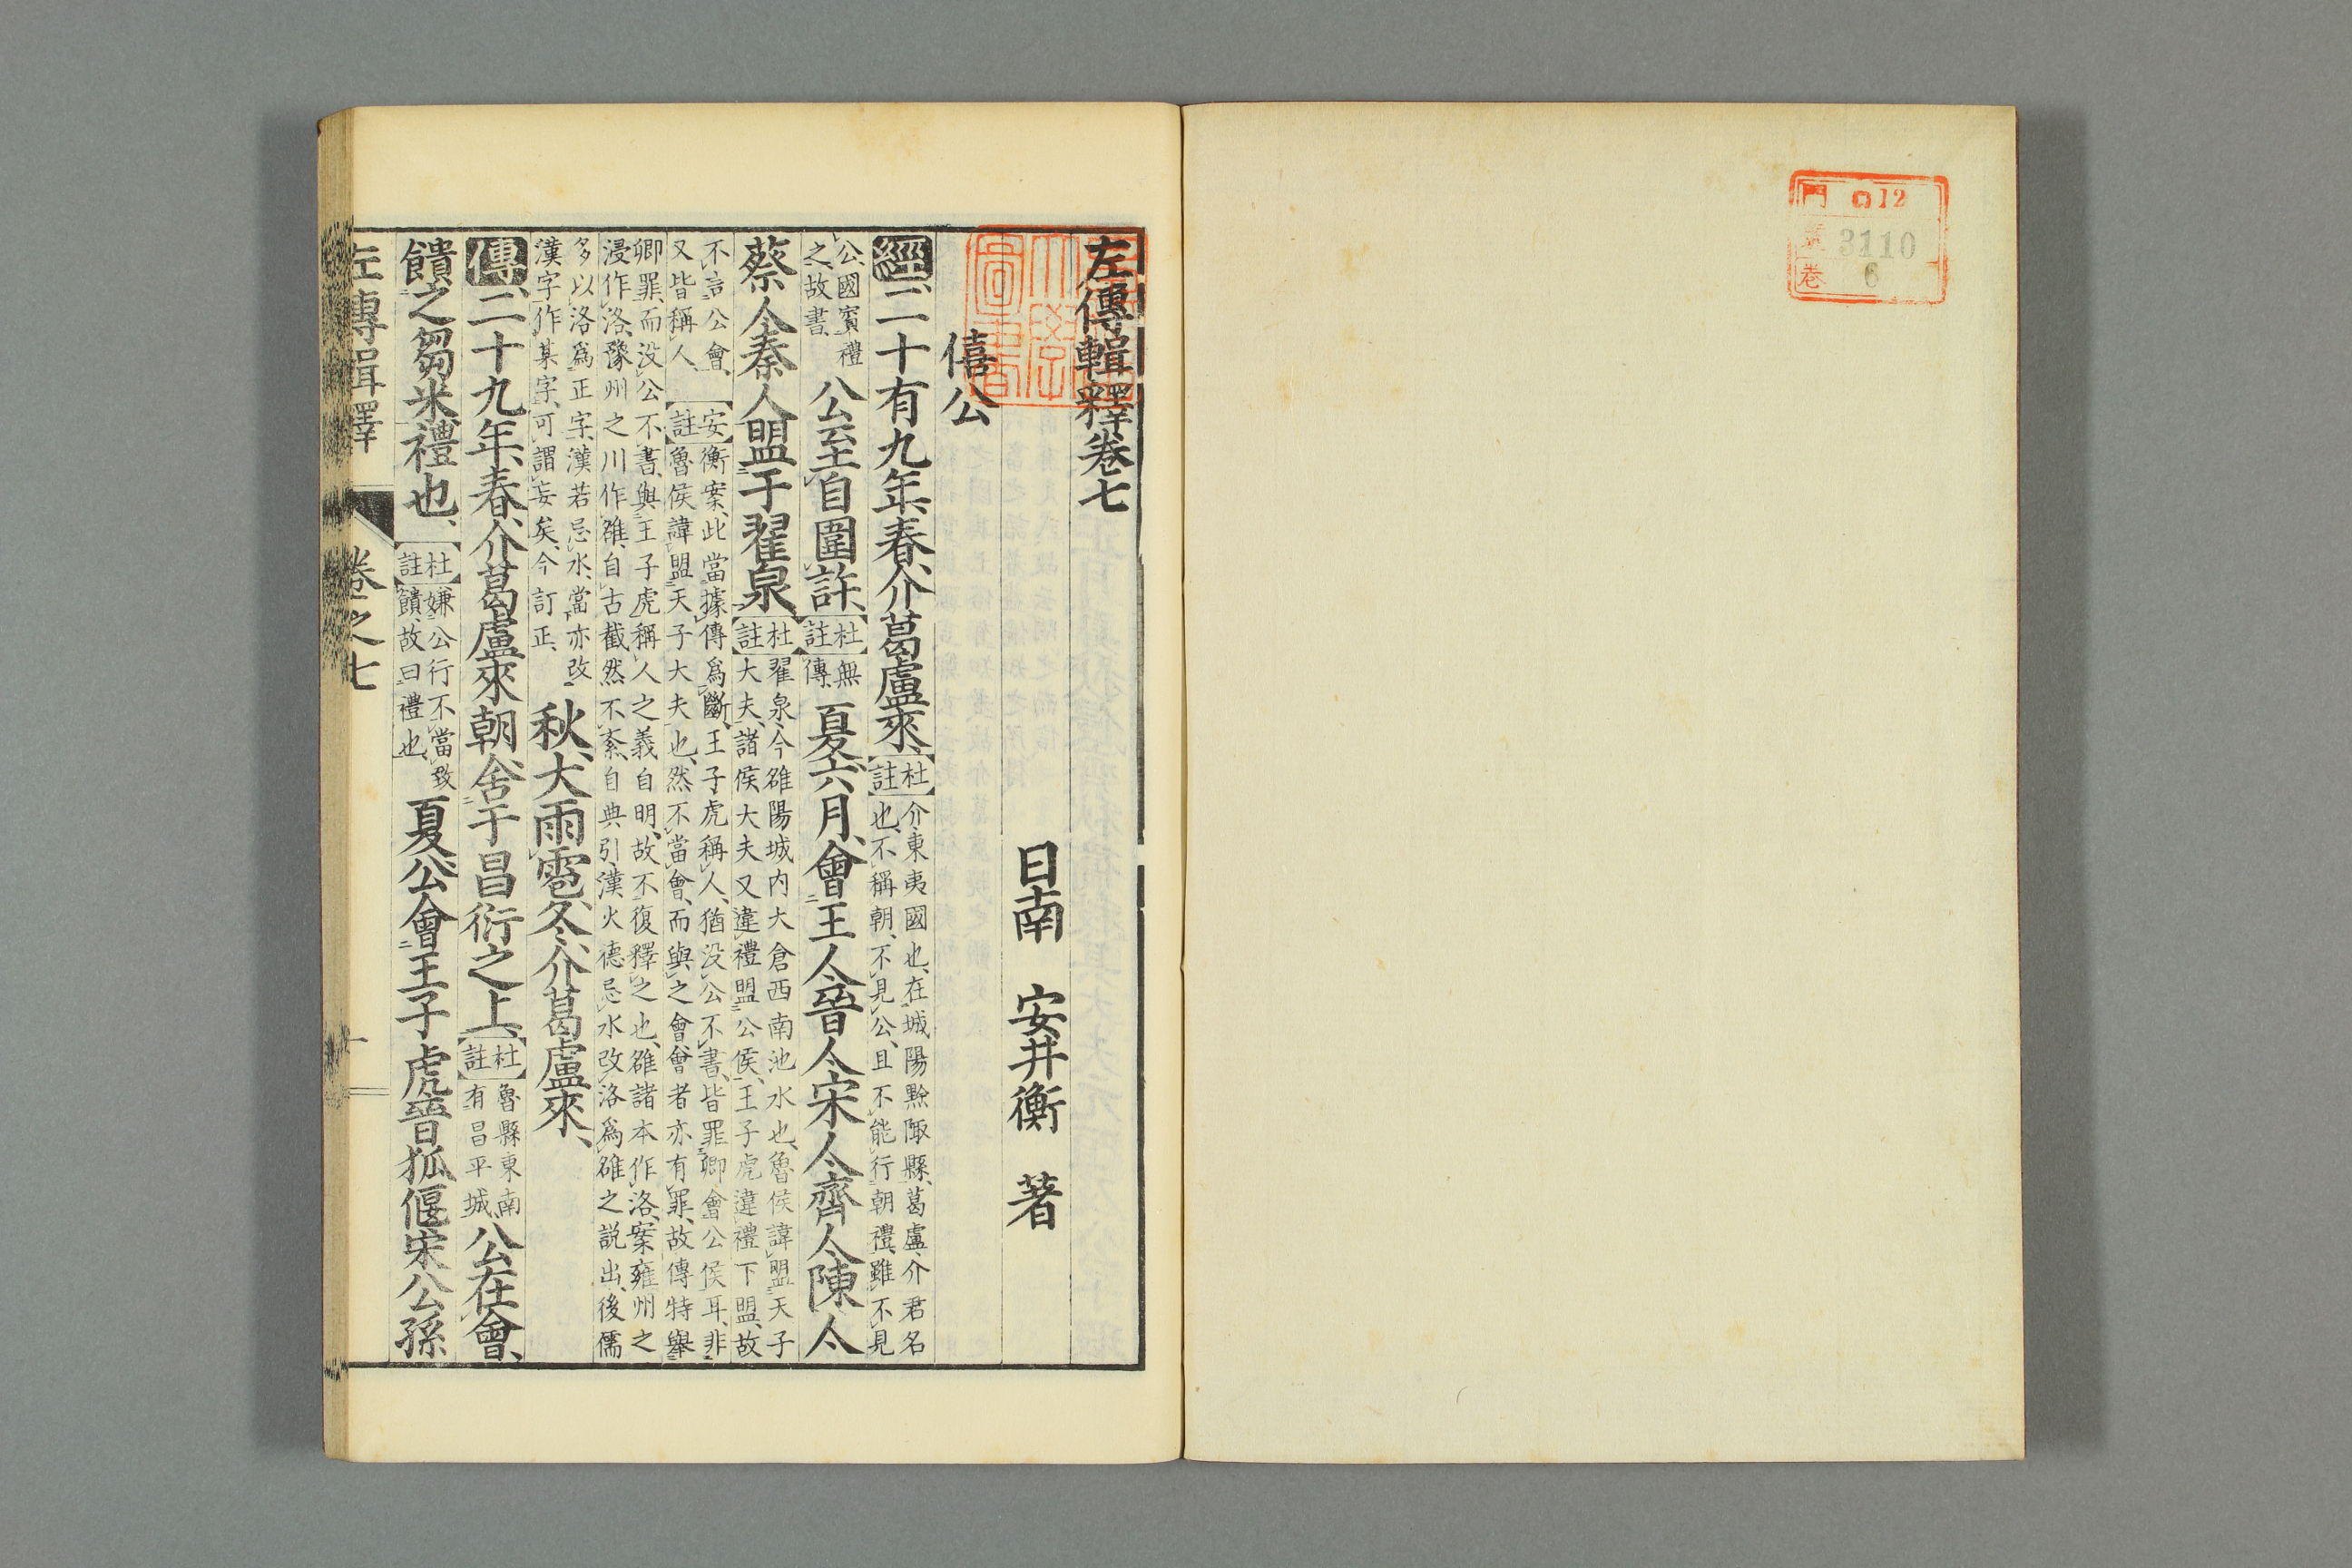 門 ロ12
號 3110
卷 6
左傳輯釋卷七
日南 安井衡 著
僖公
經二十有九年、春、介葛盧來、【杜註】介、東夷國也、在城陽黔陬縣、葛盧、介君名也、不稱朝、不見公、且不能行朝禮、雖不見
公、國賓禮之、故書、 公至自圍許、【杜註】無傳、 夏六月、會王人晉人宋人齊人陳人
蔡人秦人盟于翟泉、【杜註】翟泉、今雒陽城内大倉西南池水也、魯侯諱盟天子大夫、諸侯大夫又違禮盟公侯、王子虎違禮下盟、故
不言公會、又皆稱人、【安註】衡案、此當據傳爲斷、王子虎稱人、猶没公不書、皆罪卿會公侯耳、非魯侯諱盟天子大夫也、然不當會、而與之會、會者亦有罪、故傳特舉
卿罪、而没公不書、與王子虎稱人之義自明、故不復釋之也、雒諸本作洛、案雍州之浸作洛、豫州之川作雒、自古截然不紊、自典引漢火德忌水改洛爲雒之説出、後儒
多以洛爲正字、漢若忌水、當亦改漢字作某字、可謂妄矣、今訂正、 秋、大雨雹、冬、介葛盧來、
傳二十九年、春、介葛盧來朝、舍于昌衍之上、【杜註】魯縣東南有昌平城、 公在會、
饋之芻米、禮也、【杜註】嫌公行不當致饋、故曰禮也、 夏公會王子虎晉狐偃宋公孫
左傳輯釋 卷之七 一